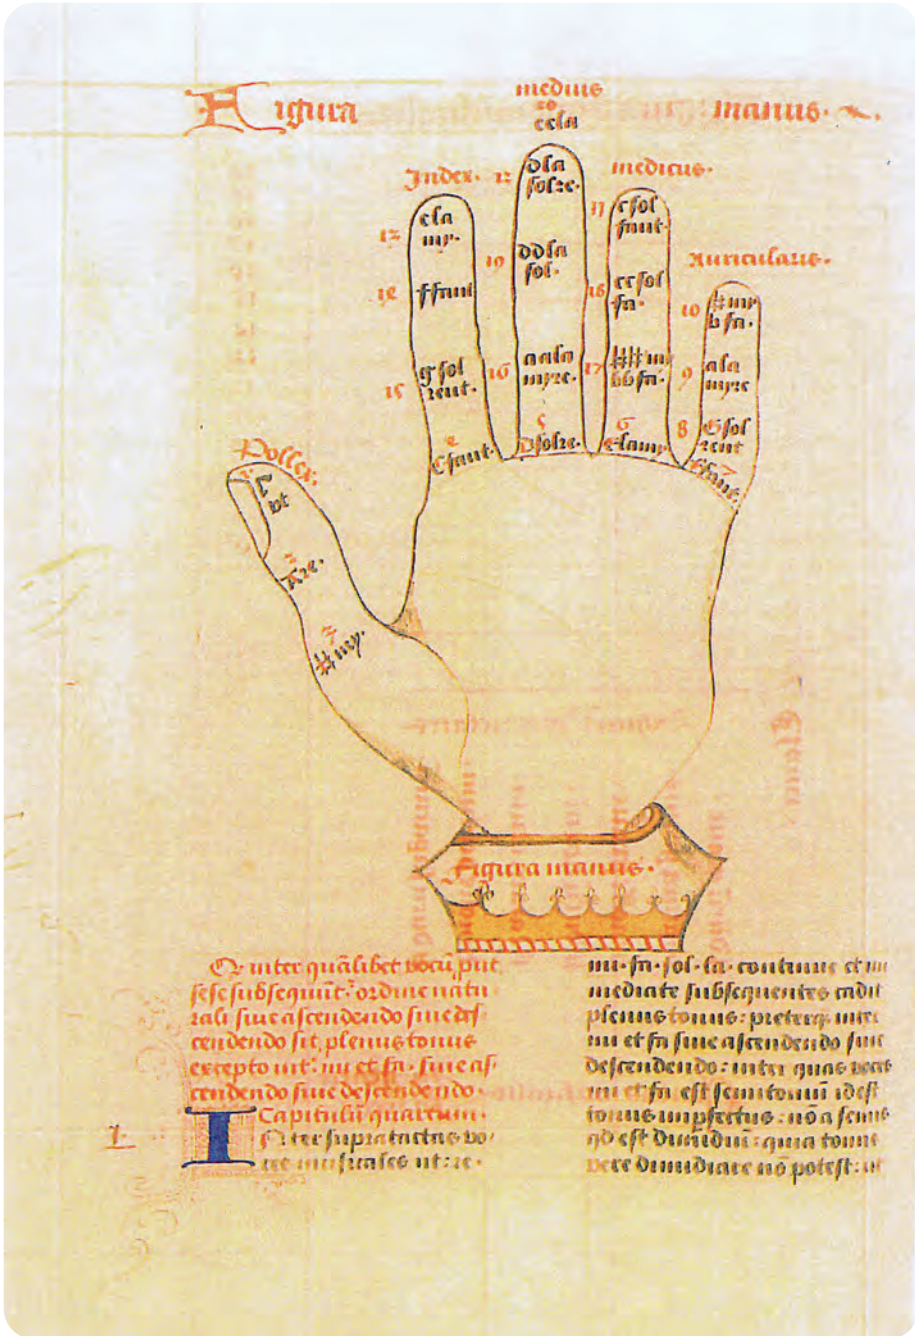 Figura manus.
medius
20
eela
Index.
13
dla
solre.
medicus.
11
csol
faut.
Auricularis.
12
ela
my.
19
ddla
sol.
18
ccsol
fa.
10
♮my
bfa.
14
ffaut
15
gsol
reut.
16
aala
myre.
17
♮♮my
bbfa.
9
ala
myre
8
Gsol
reut
4
Cfaut.
5
Dsolre.
6
Elamy.
7
Ffaut.
Pollex.
Γ
ut
2
Are.
3
♮my.
Figura manus.
Qꝫ inter quālibet vocū, put
sese subsequūt: ordine natu
rali siue ascendendo siue des
cendendo sit plenus tonus
excepto int: mi et fa. siue as/
cendendo siue descendendo.
Capitulū quartum.
Nter supratactas vo/
ces musicales ut: re.
mi. fa. sol. la. continue et im
mediate subsequentes cadit
plenus tonus: preterqꝫ inter
mi et fa siue ascendendo siue
descendendo: inter quas voces
mi et fa est semitoniū idest
tonus impfectus: nō a semis
qd est dimidiū: quia tonus
vere dimidiare nō potest: ut